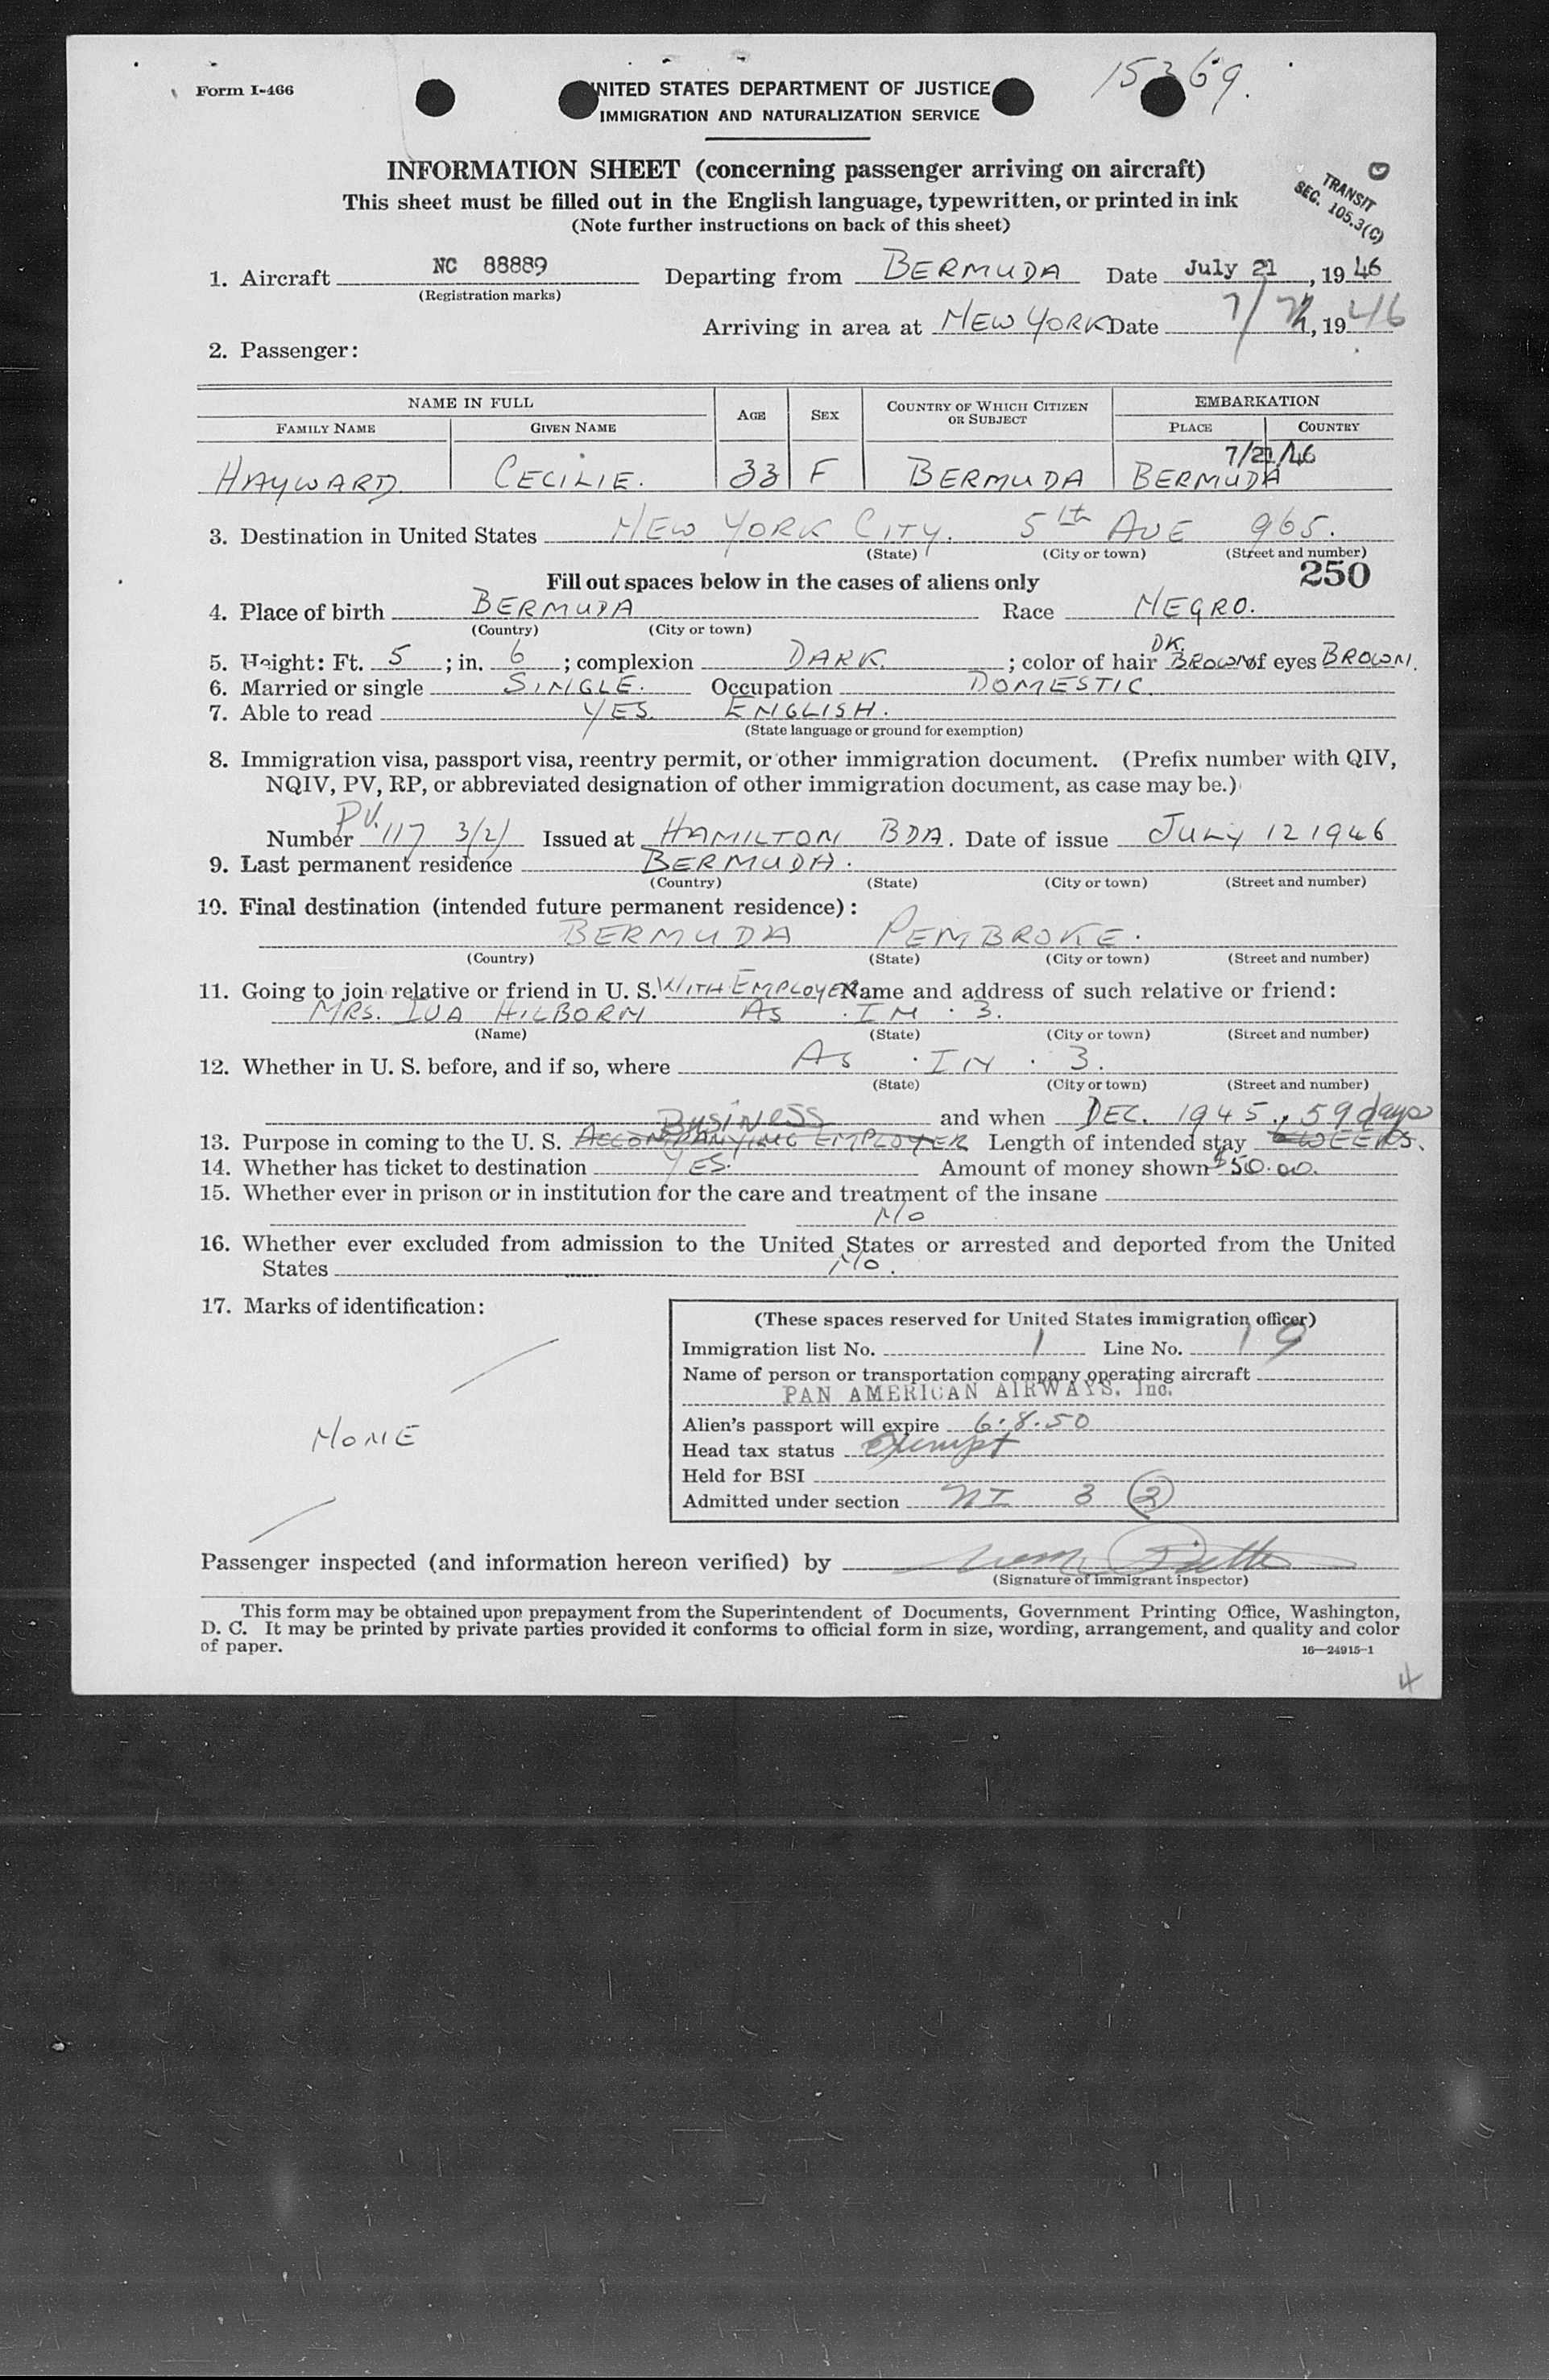 Form I-466
UNITED STATES DEPARTMENT OF JUSTICE
IMMIGRATION AND NATURALIZATION SERVICE
15369.
INFORMATION SHEET (concerning passenger arriving on aircraft)
This sheet must be filled out in the English language, typewritten, or printed in ink
(Note further instructions on back of this sheet)
TRANSIT
SEC. 105.3(C)
1. Aircraft NC 88889 Departing from BERMUDA Date July 21, 1946
(Registration marks)
Arriving in area at NEW YORK Date 7/21, 1946
2. Passenger:
NAME IN FULL AGE SEX COUNTRY OF WHICH CITIZEN OR SUBJECT EMBARKATION
FAMILY NAME GIVEN NAME PLACE COUNTRY
7/21/46
HAYWARD CECILIE. 33 F BERMUDA BERMUDA
3. Destination in United States NEW YORK CITY. 5th AVE 965.
(State) (City or town) (Street and number)
Fill out spaces below in the cases of aliens only 250
4. Place of birth BERMUDA Race NEGRO.
(Country) (City or town)
5. Height: Ft. 5; in. 6; complexion DARK.; color of hair DK. BROWN of eyes BROWN.
6. Married or single SINGLE. Occupation DOMESTIC.
7. Able to read YES. ENGLISH.
(State language or ground for exemption)
8. Immigration visa, passport visa, reentry permit, or other immigration document. (Prefix number with QIV,
NQIV, PV, RP, or abbreviated designation of other immigration document, as case may be.)
Number PV. 117 3(2) Issued at HAMILTON BDA. Date of issue JULY 12 1946
9. Last permanent residence BERMUDA.
(Country) (State) (City or town) (Street and number)
10. Final destination (intended future permanent residence):
BERMUDA PEMBROKE.
(Country) (State) (City or town) (Street and number)
11. Going to join relative or friend in U. S. WITH EMPLOYER Name and address of such relative or friend:
MRS. IVA HILBORN AS IN 3.
(Name) (State) (City or town) (Street and number)
12. Whether in U. S. before, and if so, where AS IN 3.
(State) (City or town) (Street and number)
BUSINESS and when DEC. 1945. 59 days
13. Purpose in coming to the U. S. ACCOMPANYING EMPLOYER Length of intended stay 6 WEEKS.
14. Whether has ticket to destination YES. Amount of money shown $50.00.
15. Whether ever in prison or in institution for the care and treatment of the insane
NO
16. Whether ever excluded from admission to the United States or arrested and deported from the United
States NO.
17. Marks of identification:
NONE
(These spaces reserved for United States immigration officer)
Immigration list No. 1 Line No. 19
Name of person or transportation company operating aircraft
PAN AMERICAN AIRWAYS, Inc.
Alien's passport will expire 6.8.50
Head tax status exempt
Held for BSI
Admitted under section NI 3 (2)
Passenger inspected (and information hereon verified) by
(Signature of immigrant inspector)
This form may be obtained upon prepayment from the Superintendent of Documents, Government Printing Office, Washington,
D. C. It may be printed by private parties provided it conforms to official form in size, wording, arrangement, and quality and color
of paper.
16—24915-1
4